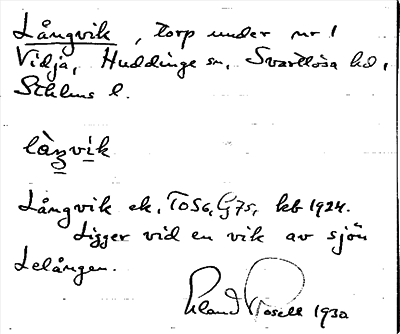 Långvik, torp under nr 1
Vidja, Huddinge sn, Svartlösa hd,
Sthlms l.
làŋvik
Långvik ek, T056, G75, kb 1924.
Ligger vid en vik av sjön
Lelången.
Roséll 1930